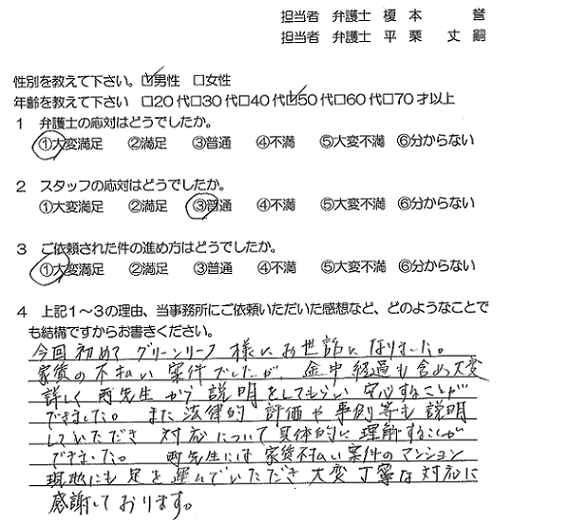 担当者 弁護士 榎本 誉
担当者 弁護士 平栗 丈嗣
性別を教えて下さい。☑男性 □女性
年齢を教えて下さい □20代□30代□40代☑50代□60代□70才以上
1 弁護士の応対はどうでしたか。
①大変満足 ②満足 ③普通 ④不満 ⑤大変不満 ⑥分からない
2 スタッフの応対はどうでしたか。
①大変満足 ②満足 ③普通 ④不満 ⑤大変不満 ⑥分からない
3 ご依頼された件の進め方はどうでしたか。
①大変満足 ②満足 ③普通 ④不満 ⑤大変不満 ⑥分からない
4 上記1~3の理由、当事務所にご依頼いただいた感想など、どのようなことで
も結構ですからお書きください。
今回初めてグリーンリーフ様にお世話になりました。
家賃の不払い案件でしたが、途中経過も含め大変
詳しく両先生から説明をしてもらい安心することが
できました。また法律的評価や事例等も説明
していただき対応について具体的に理解することが
できました。両先生には家賃不払い案件のマンション
現地にも足を運んでいただき大変丁寧な対応に
感謝しております。